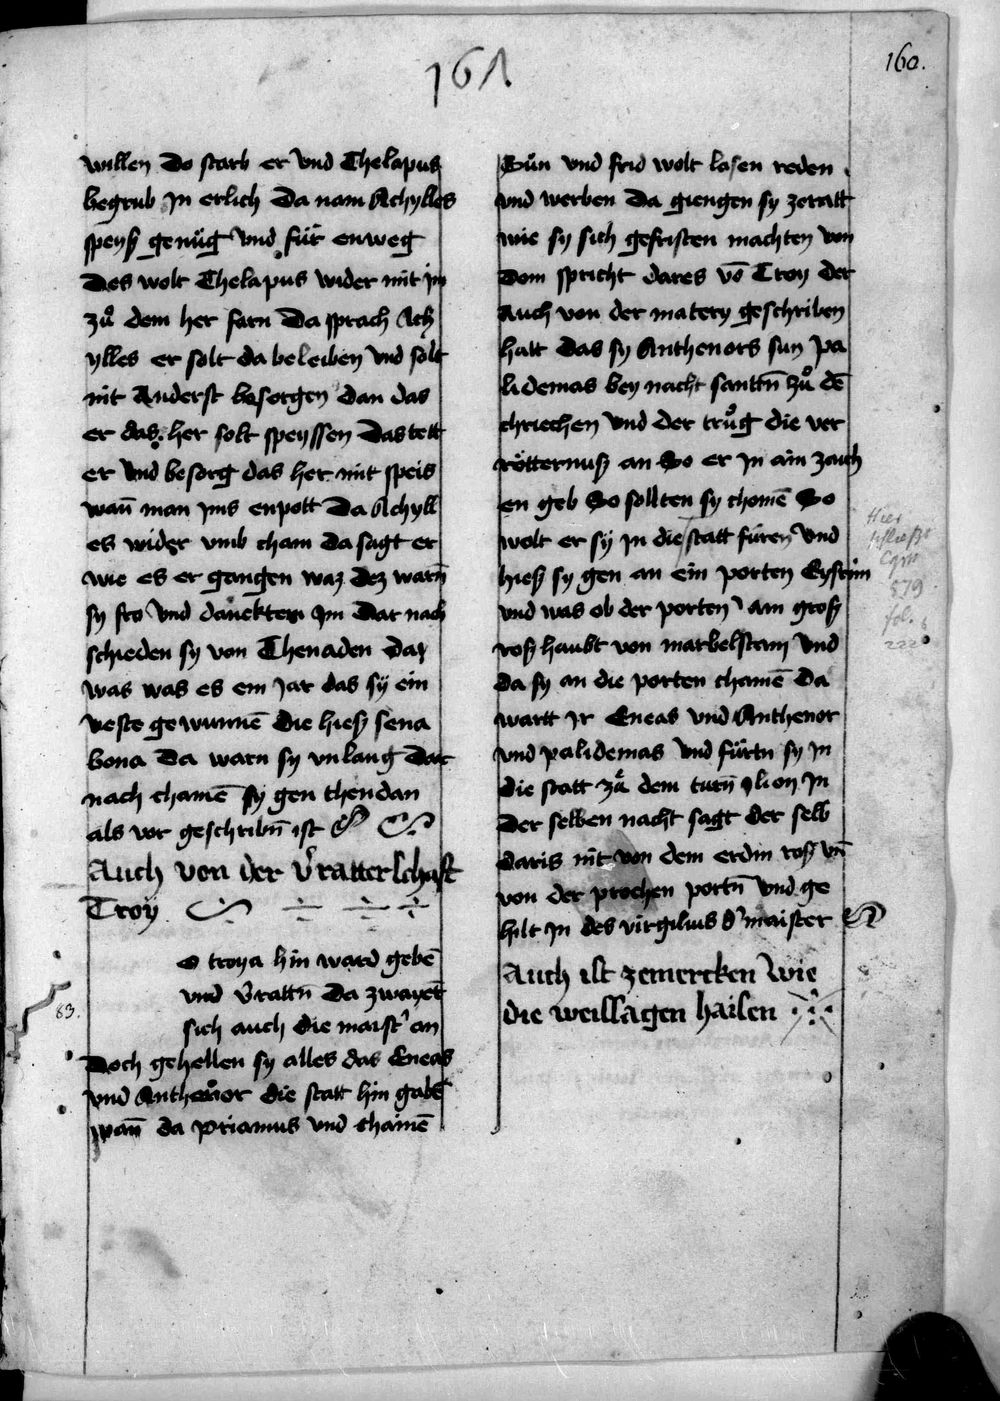 161
160.
willen do starb er vnd Thelapus
begrub in erlich Da nam Achylles
speyß genüg vnd für enweg
Des wolt Thelapus wider mit im
zů dem her farn Da sprach Ach
ylles er solt da beleiben vnd solt
nit Anderst besorgen dan das
er das her solt speyssen Das tett
er vnd besorg das her mit speis
wan̄ man ims enpott Da Achyll
es wider vmb cham da sagt er
wie es er gangen waz dez warn̄
sy fro vnd danckten Im Dar nach
schieden sy von Thenaden daz
was was es ein Jar das sÿ ein
veste gewunnē die hieß sena
bona Da warn sy vnlang dar
nach chamē sy gen thendan
als vor geschribn̄ ist
Auch von der v̓ratterschaft
Troy
o troya hin ward gebē
vnd v̓rattn̄ Da zwayet
sich auch die maist̓ an
Doch gehellen sy alles das Eneas
vnd Anthenor die statt hin gabē
wan̄ da priamus vnd chainē
83.
Sün vnd frid wolt lasen reden
vnd werben Da giengen sy zeratt
wie sy sich gefristen machten von
Dom spricht dares vō Troy der
Auch von der matery geschriben
hatt das sy Anthenors sun pa
lidemas bey nacht santtn̄ zů dē
chriechen vnd der trůg die ver
rötternuß an So er in ain zaich
en geb So sollten sy chomē So
wolt er sÿ in die statt füren vnd
hieß sy gen an ein porten Eysrim
vnd was ob der porten am groß
roß haubt von marbelstain vnd
da sy an die porten chamē Da
wartt ir Eneas vnd Anthenor
vnd palidemas vnd fürtn sy in
die statt zů dem turn̄ ylion In
Der selben nacht sagt der selb
daris nit von dem erdin roß vn̄
von der prochen portn̄ vnd ge
hilt in des virgilius d̓ maister
Auch ist zemercken wie
die weissagen haisen
Hier
schließt
Cgm
579
fol.
222